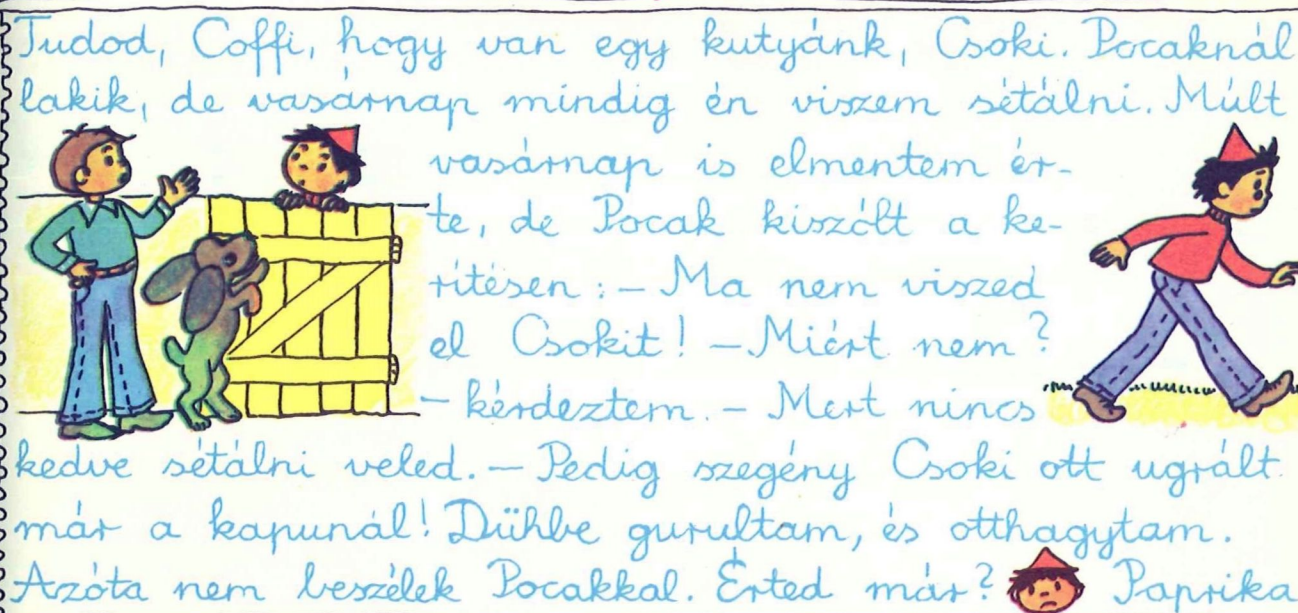 Tudod, Coffi, hogy van egy kutyánk, Csoki. Pocaknál
lakik, de vasárnap mindig én viszem sétálni. Múlt
vasárnap is elmentem ér-
te, de Pocak kiszólt a ke-
rítésen: – Ma nem viszed
el Csokit! – Miért nem?
– kérdeztem. – Mert nincs
kedve sétálni veled. – Pedig szegény Csoki ott ugrált
már a kapunál! Dühbe gurultam, és otthagytam.
Azóta nem beszélek Pocakkal. Érted már? Paprika